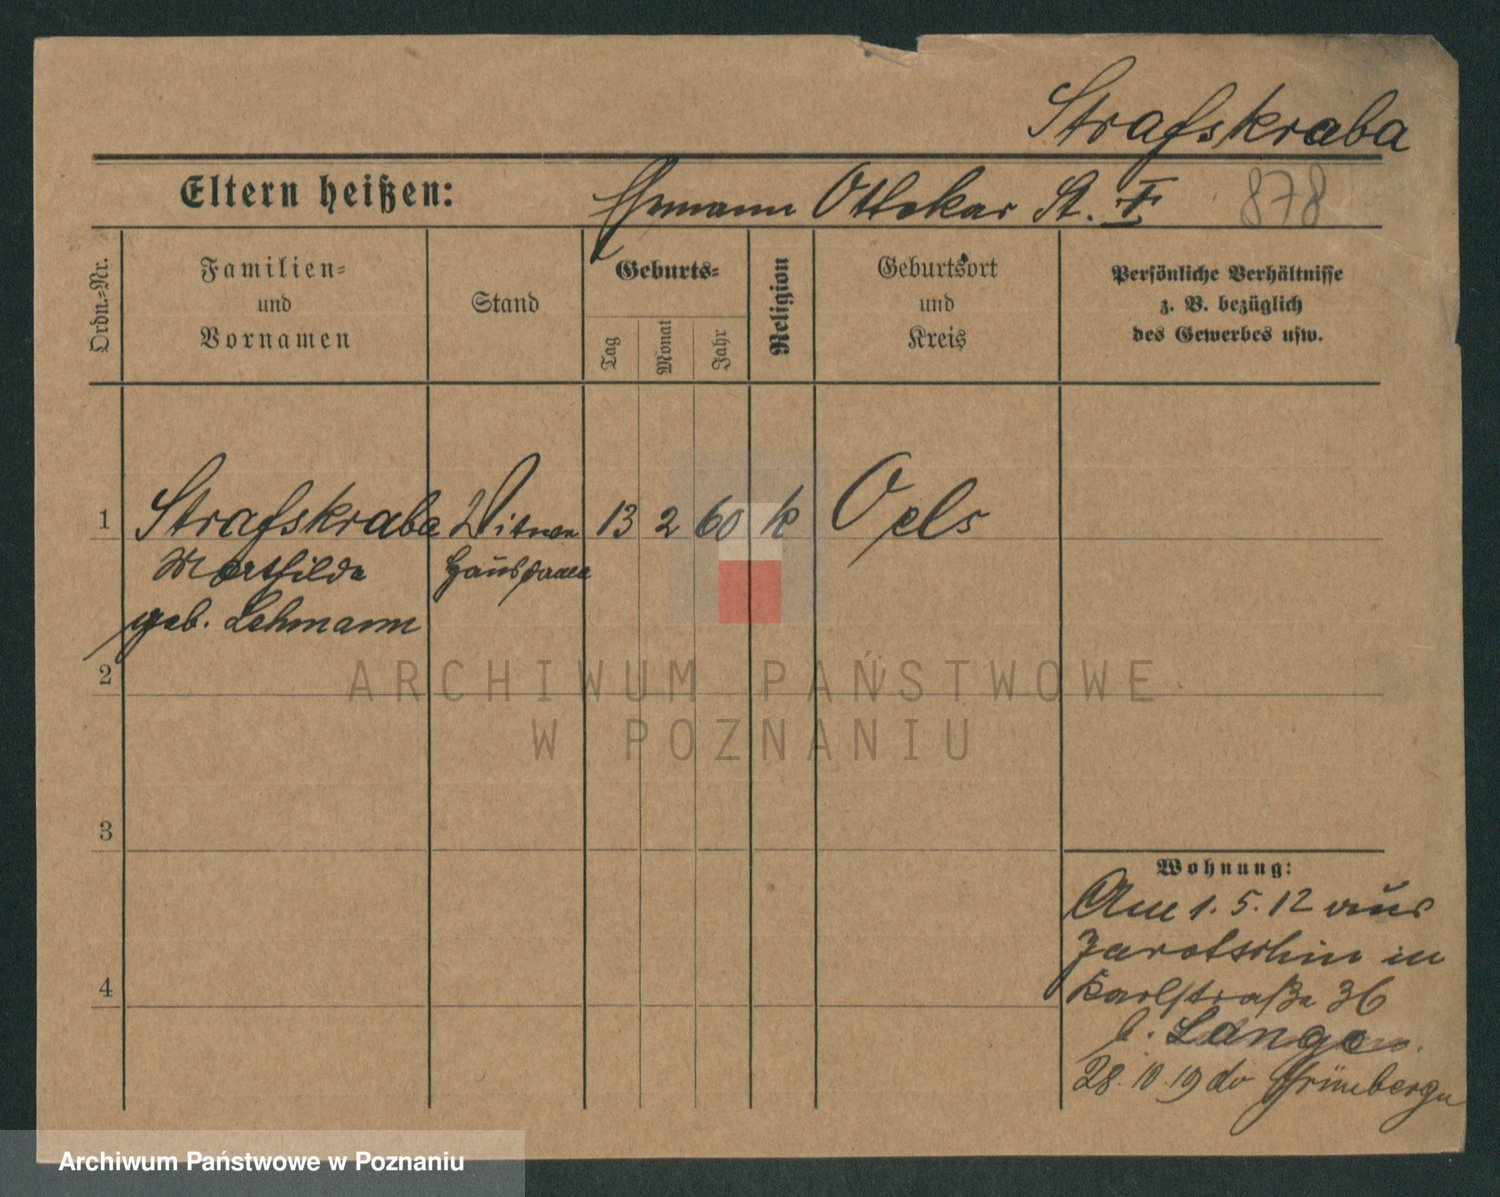 Strafskraba
Eltern heißen: Hermann Ottokar St. I 878
Ordn.=Nr.
Familien=
und
Vornamen
Stand
Geburts=
Tag
Monat
Jahr
Religion
Geburtsort
und
Kreis
Persönliche Verhältnisse
z. B. bezüglich
des Gewerbes usw.
1 Strafskraba Witwe 13 2 60 k Oels
Mathilde
geb. Lehmann
2
3
4
Wohnung:
Am 1. 5. 12 aus
Jarotschin in
Karlstraße 36
b. Lange
28. 10. 19 do Grünberger
ARCHIWUM PAŃSTWOWE
W POZNANIU
Archiwum Państwowe w Poznaniu